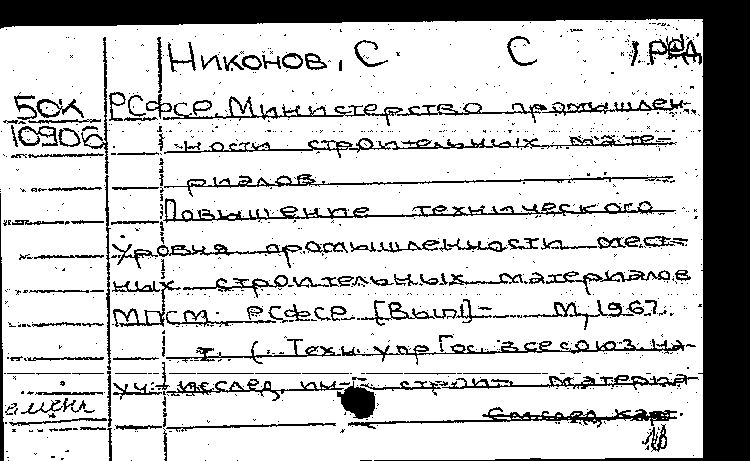 Никонов, С. С
50К РСФСР. Министерство промышлен-
10906 ности строительных мате-
риалов.
Повышение технического
уровня промышленности мест-
ных строительных материалов
МПСМ РСФСР. [Вып]- М, 1967.
т. (.. Техн. упр Гос. всесоюз. на-
уч.-исслед. ин-т строит материа